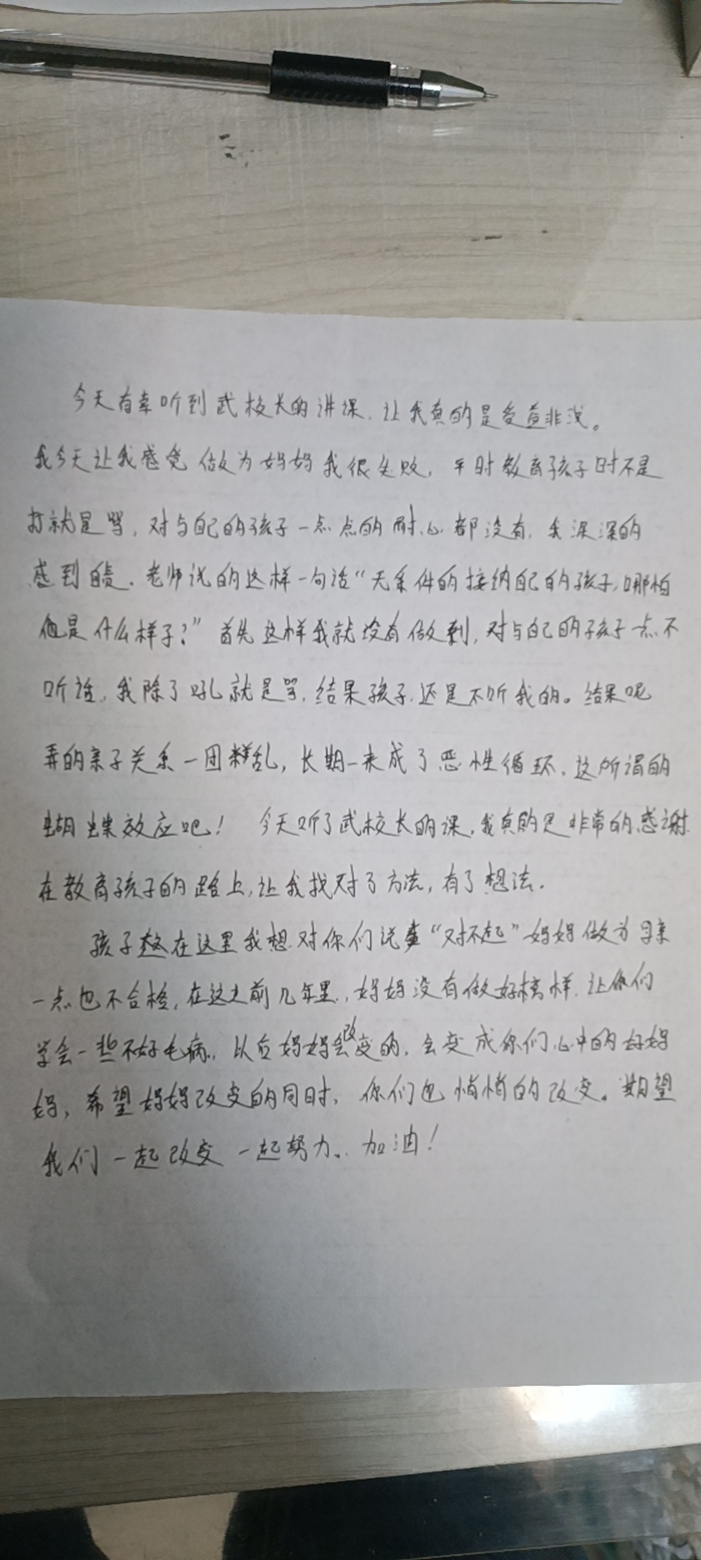 今天有幸听到武校长的讲课.让我真的是受益非浅。
我今天让我感觉做为妈妈我很失败,平时教育孩子时不是
打就是骂,对与自己的孩子一点点的耐心都没有,我深深的
感到自责.老师说的这样一句话“无条件的接纳自己的孩子,哪怕
他是什么样子?”首先这样我就没有做到,对与自己的孩子一点不
听话,我除了吼就是骂,结果孩子.还是不听我的。结果呢
弄的亲子关系一团糟乱,长期一来成了恶性循环.这所谓的
蝴蝶效应吧! 今天听了武校长的课,我真的是非常的感谢.
在教育孩子的路上,让我找对了方法,有了想法.
孩子在这里我想对你们说 “对不起”妈妈做为母亲
一点也不合格,在这之前几年里,妈妈没有做好榜样.让你们
学会一些不好毛病.以后妈妈会改变的,会变成你们心中的好妈
妈,希望妈妈改变的同时,你们也悄悄的改变。期望
我们一起改变一起努力.加油!